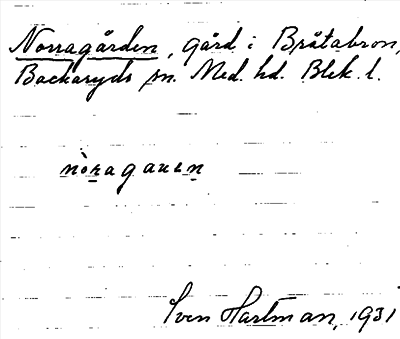 Norragården, gård i Bråtabron,
Backaryds sn. Med. hd. Blek. l.
nòragaʀɛn
Sven Hartman, 1931